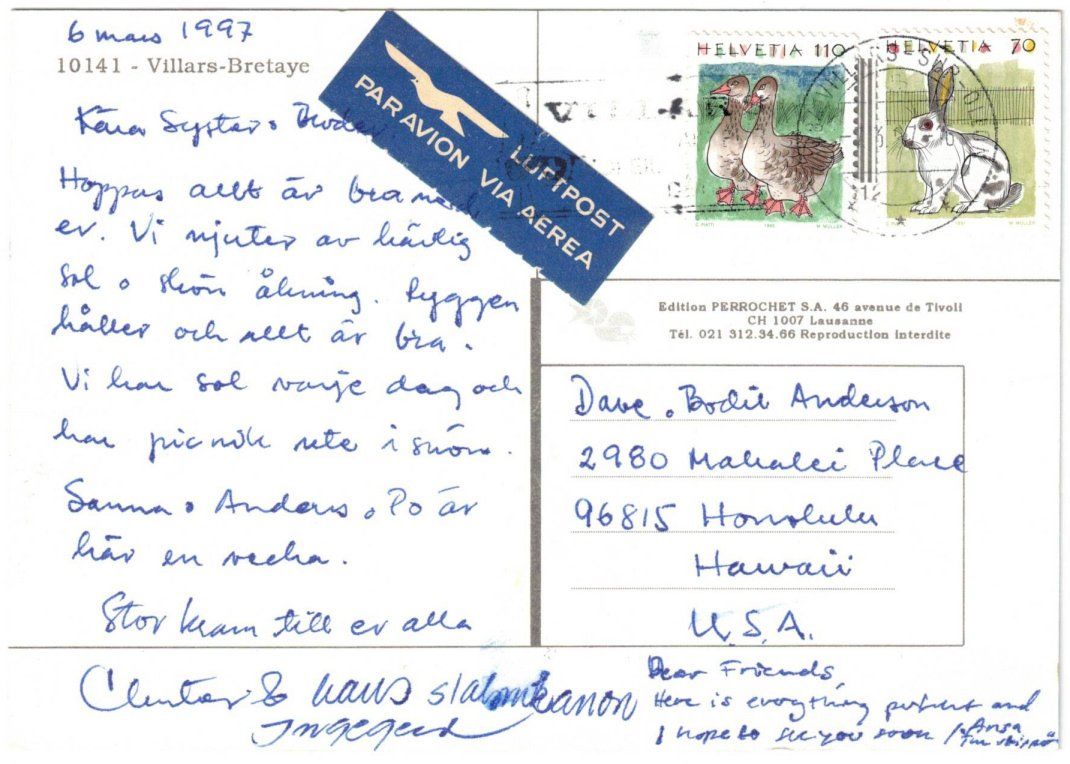 6 mars 1997
10141 - Villars-Bretaye
Kära Syster o Broder
Hoppas allt är bra med
er. Vi njuter av härlig
sol o skön åkning. Ryggen
håller och allt är bra.
Vi har sol varje dag och
har picnik ute i snön.
Sanna o Anders o Po är
här en vecka.
Stor kram till er alla
& hans
Ingegerd
PAR AVION
LUFTPOST
VIA AEREA
HELVETIA 110
HELVETIA 70
Edition PERROCHET S.A. 46 avenue de Tivoli
CH 1007 Lausanne
Tél. 021 312.34.66 Reproduction interdite
Dave o Bodil Anderson
2980 Makalei Place
96815 Honolulu
Hawaii
U.S.A.
Dear Friends,
Here is everything perfect and
I hope to see you soon /